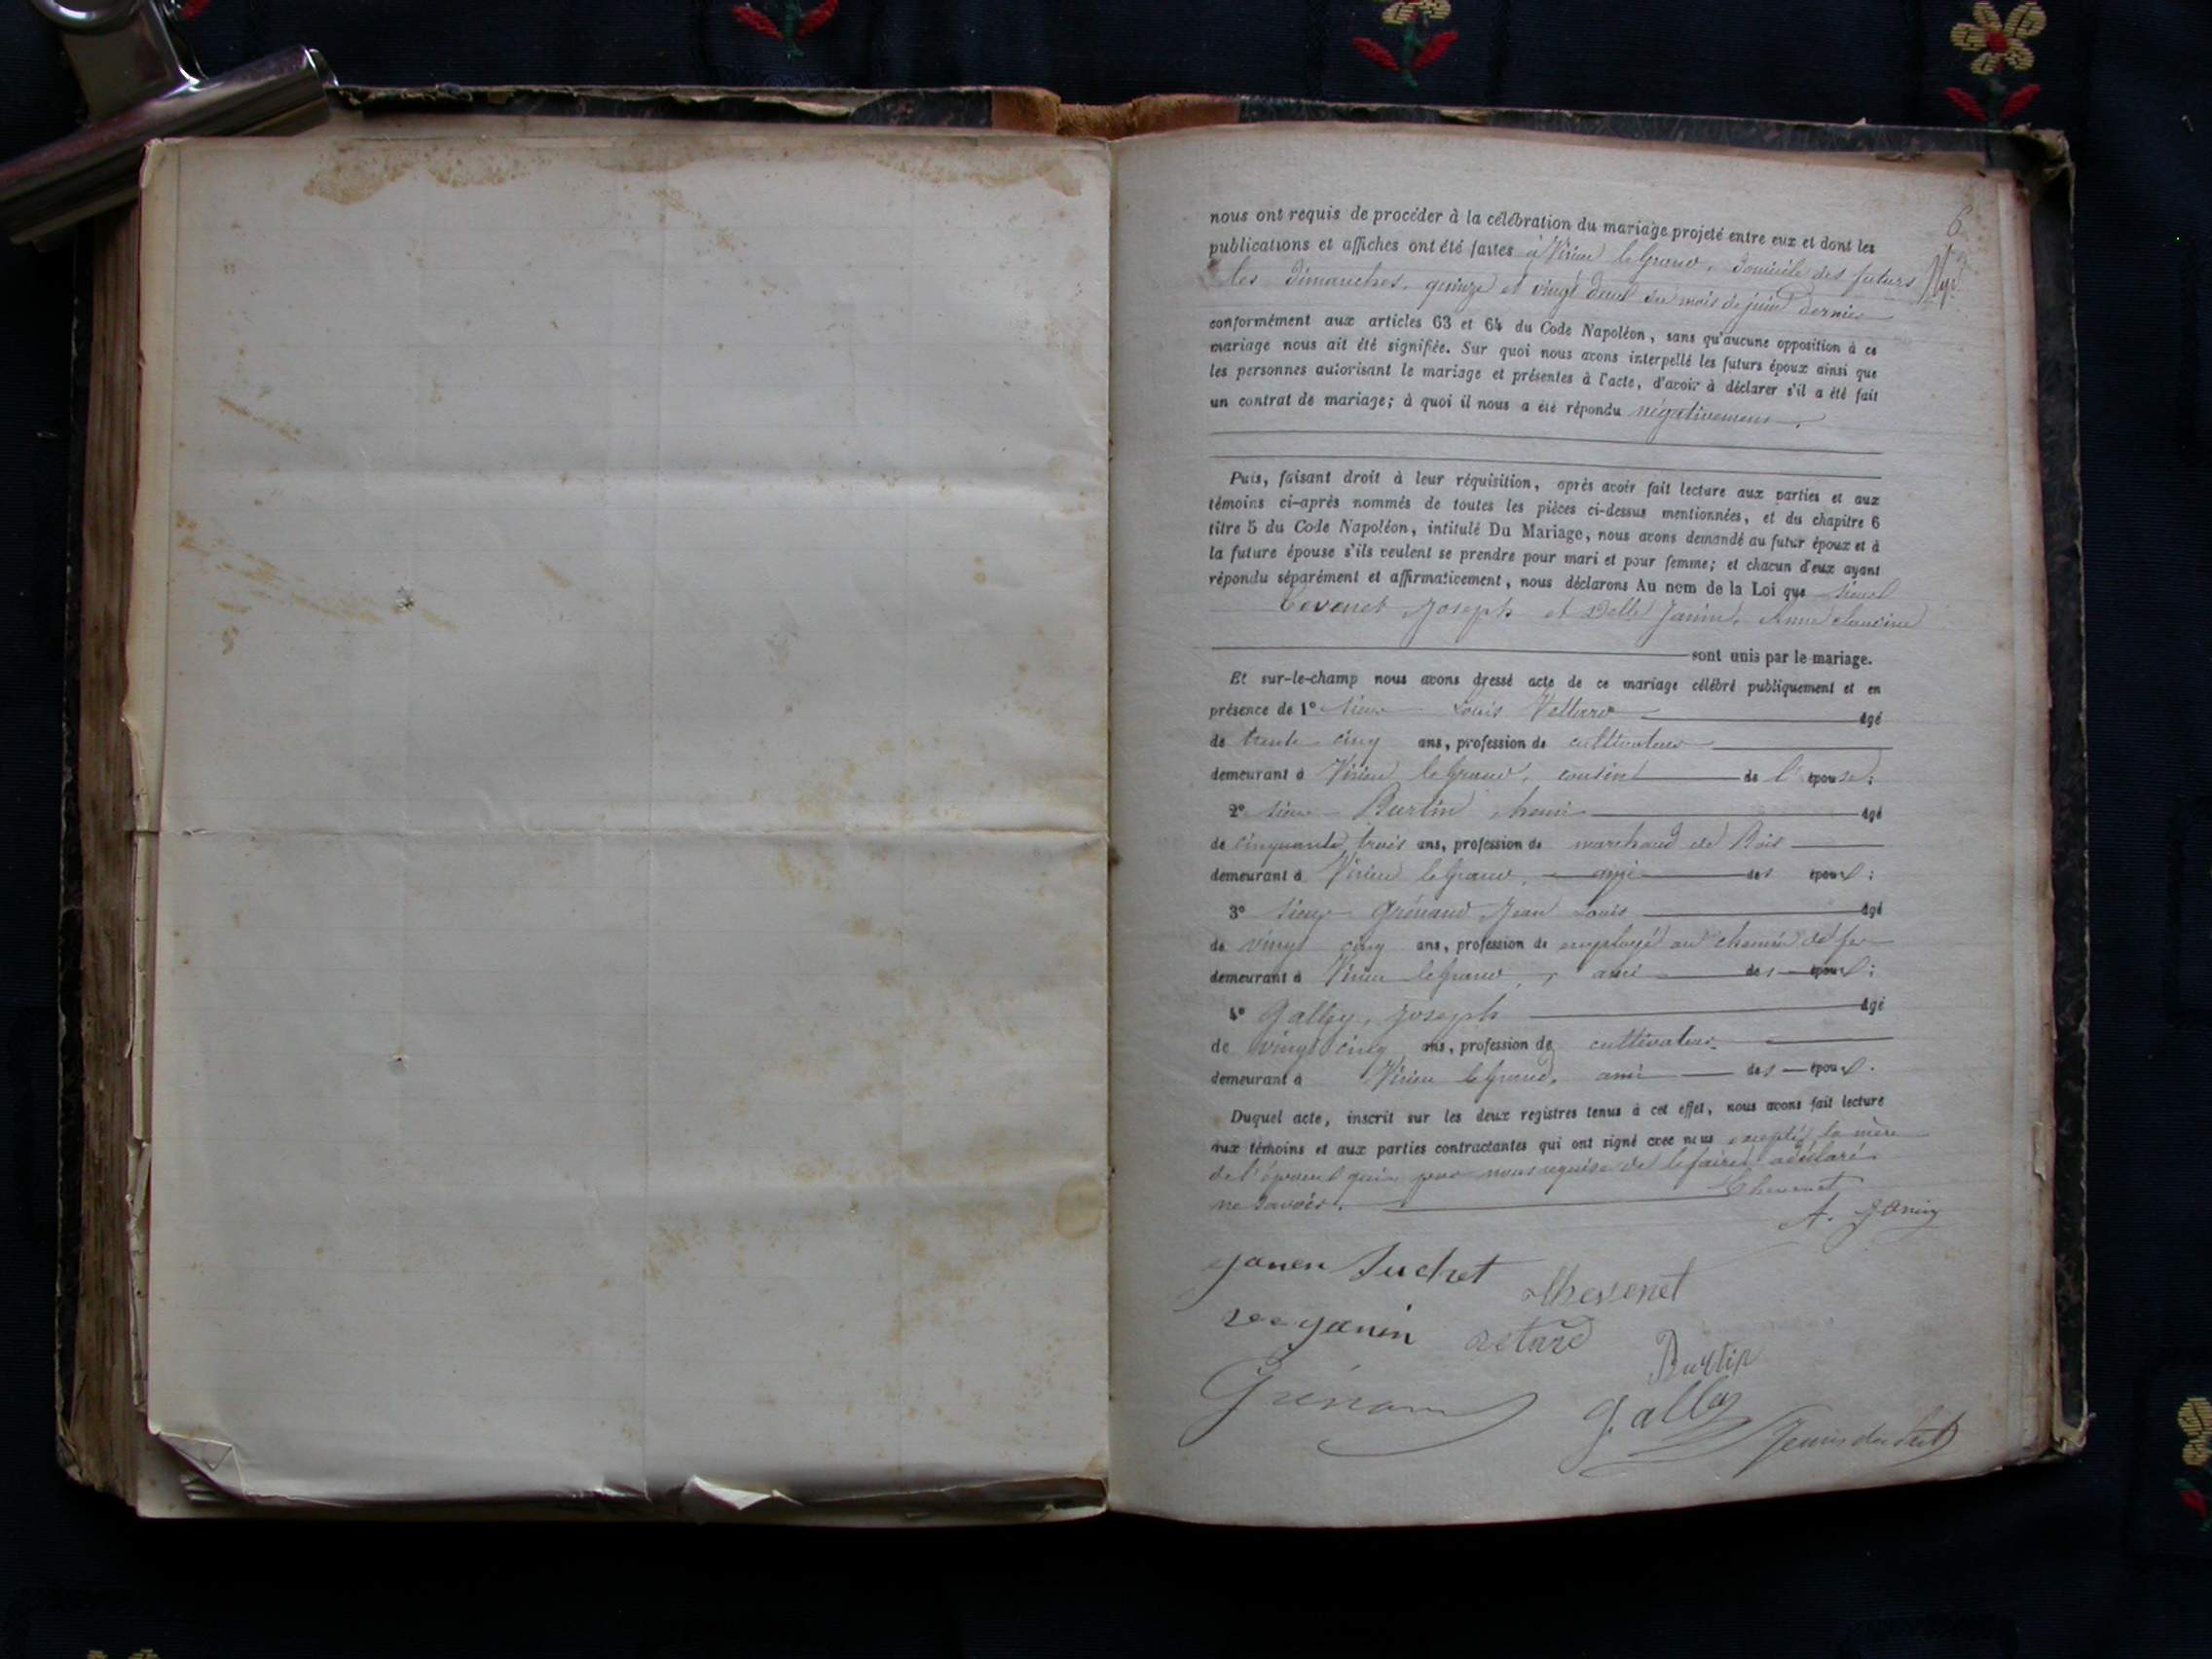 6
nous ont requis de procéder à la célébration du mariage projeté entre eux et dont les
publications et affiches ont été faites à Virieu le grand, domicile des futurs
les dimanches, quinze et vingt deux du mois de juin dernier
conformément aux articles 63 et 64 du Code Napoléon, sans qu'aucune opposition à ce
mariage nous ait été signifiée. Sur quoi nous avons interpellé les futurs époux ainsi que
les personnes autorisant le mariage et présentes à l'acte, d'avoir à déclarer s'il a été fait
un contrat de mariage; à quoi il nous a été répondu négativement.
Puis, faisant droit à leur réquisition, après avoir fait lecture aux parties et aux
témoins ci-après nommés de toutes les pièces ci-dessus mentionnées, et du chapitre 6
titre 5 du Code Napoléon, intitulé Du Mariage, nous avons demandé au futur époux et à
la future épouse s'ils veulent se prendre pour mari et pour femme; et chacun d'eux ayant
répondu séparément et affirmativement, nous déclarons Au nom de la Loi que
Joseph et Delle Janin, Anne
sont unis par le mariage.
Et sur-le-champ nous avons dressé acte de ce mariage célébré publiquement et en
présence de 1° sieur Louis âgé
de trente cinq ans, profession de cultivateur
demeurant à Virieu le grand, cousin de l'épouse;
2° sieur Burtin âgé
de cinquante trois ans, profession de marchand de Bois
demeurant à Virieu le grand, ami des époux;
3° sieur Grénard Jean Louis âgé
de vingt cinq ans, profession de employé au chemin de fer
demeurant à Virieu le grand, ami des époux;
4° Gallay, Joseph âgé
de vingt cinq ans, profession de cultivateur
demeurant à Virieu le grand, ami des époux.
Duquel acte, inscrit sur les deux registres tenus à cet effet, nous avons fait lecture
aux témoins et aux parties contractantes qui ont signé avec nous excepté la mère
de l'époux qui, par nous requise de le faire, a déclaré
ne savoir.
A. Janin
Janin Suchet
janin
Burtin
Grénard